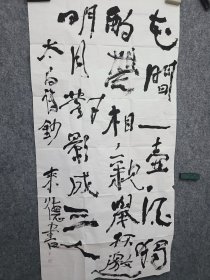 花間一壺酒獨
酌無相親舉杯邀
明月對影成三人
太白詩鈔 書